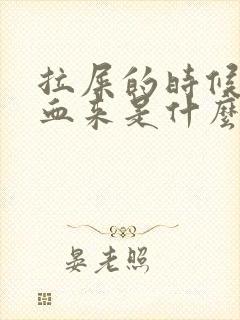 拉屎的時候
血来是什麼
晏老照